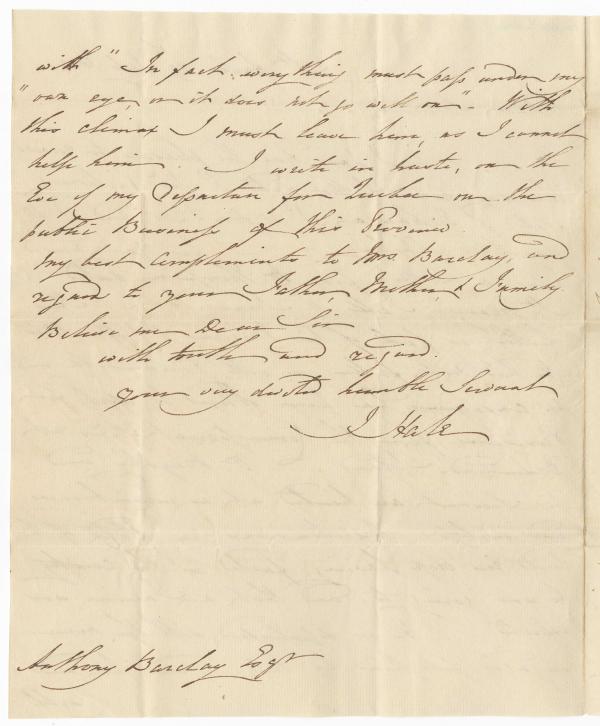 with "In fact, everything must pass under my
"own eye, or it does not go well on". With
this climax I must leave him, as I cannot
help him. I write in haste, on the
Eve of my Departure for Quebec on the
public Business of this Province.
My best Compliments to Mrs. Barclay, and
regard to your Father, Mother, & Family.
Believe me Dear Sir
with truth and regard.
your very devoted humble Servant
J Hale
Anthony Barclay Esqr